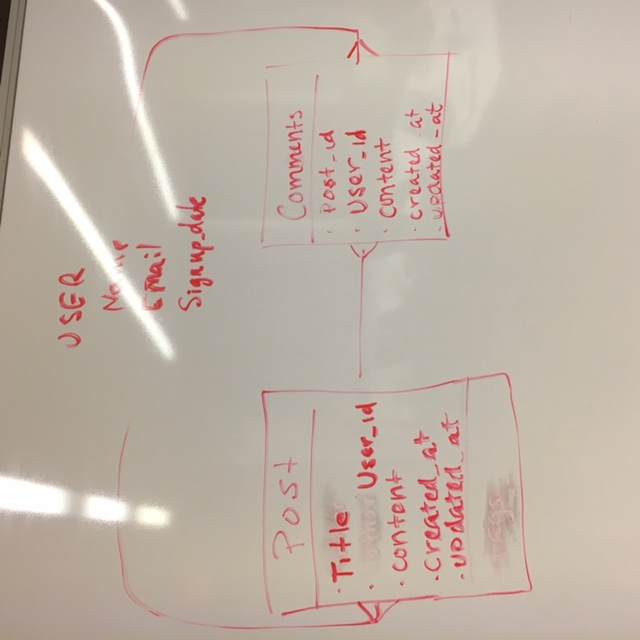 USER
Name
Email
Signup_date
Post
· Title
· User_id
· content
· created_at
· updated_at
Comments
· Post_id
· User_id
· content
· created_at
· updated_at